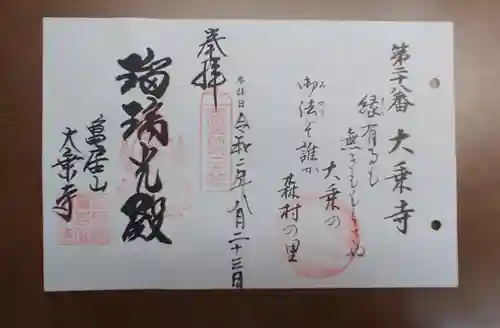 第二十八番 大乗寺
縁有るも
無きも
御法ぞ誰か
大乗の
森村の里
奉拝
参拝日
令和二年八月二十三日
瑠璃光殿
亀居山
大乗寺